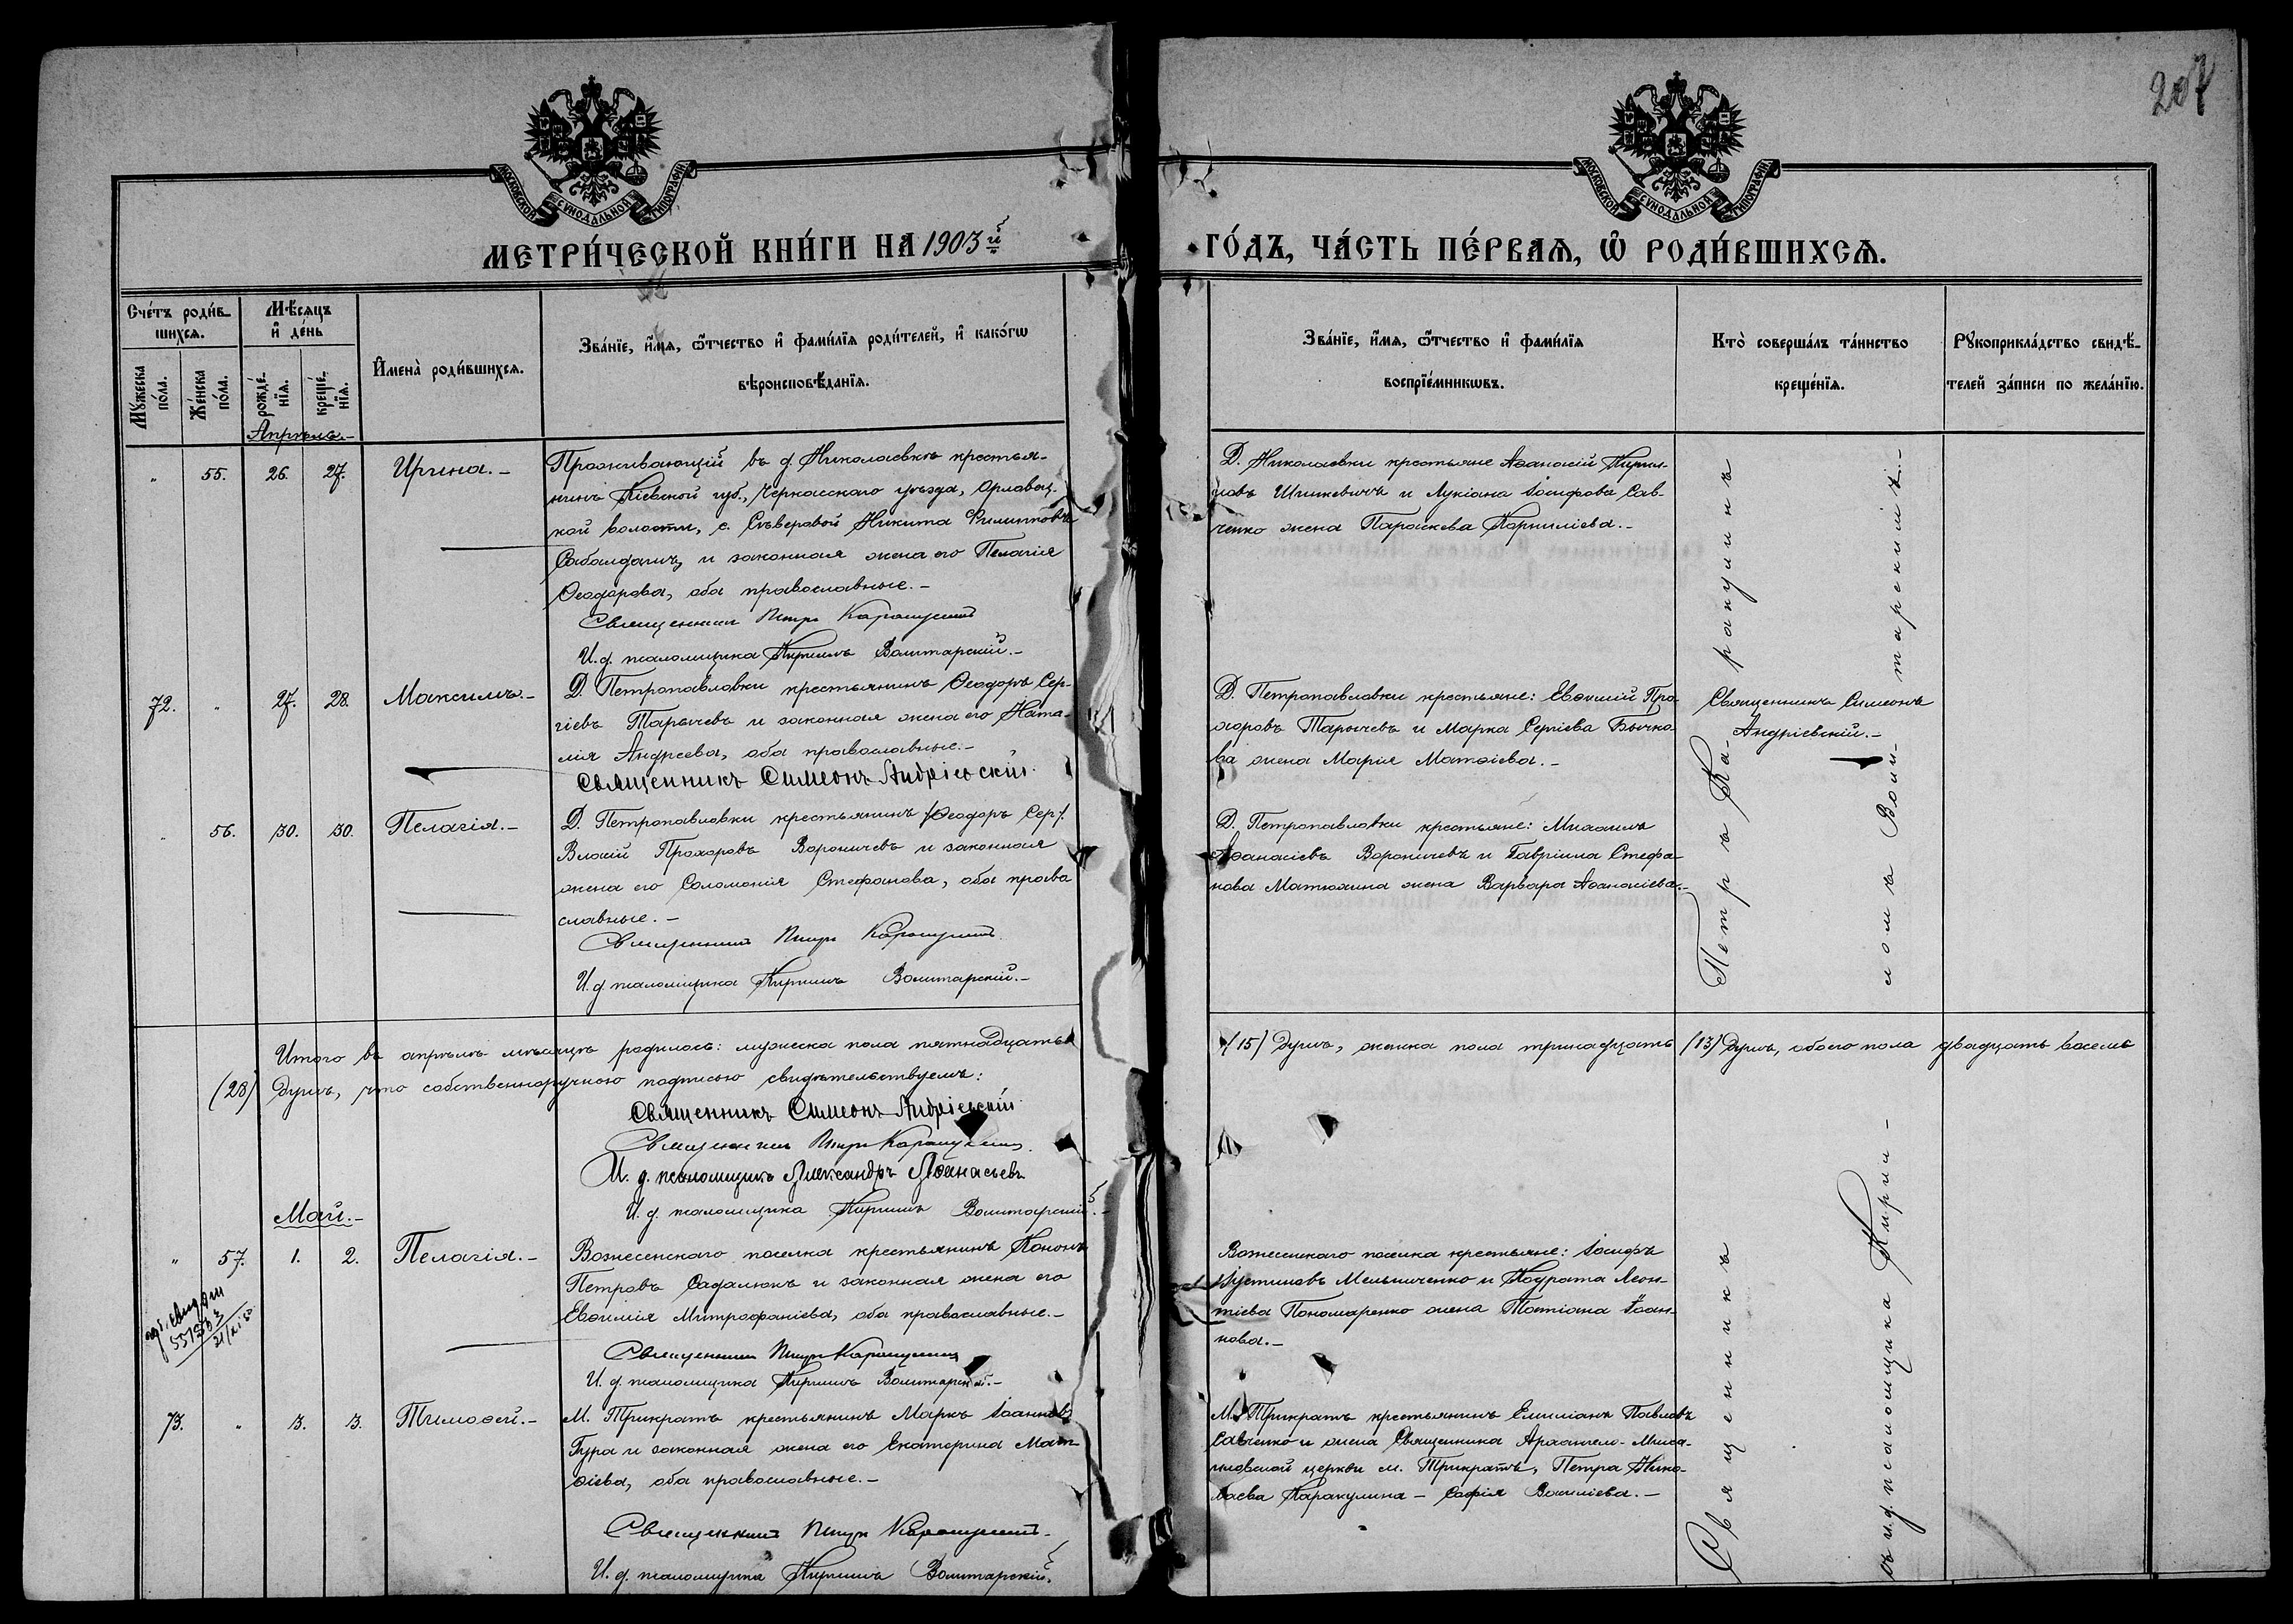 207
МОСКОВСКОЙ СУНОДАЛЬНОЙ ТИПОГРАФІИ
МОСКОВСКОЙ СУНОДАЛЬНОЙ ТИПОГРАФІИ
МЕТРИ́ЧЕСКОЙ КНИ́ГИ НА 1903й
ГО́ДЪ, ЧА́СТЬ ПЕ́РВАѦ, Ѡ҆ РОДИ́ВШИХСѦ.
Сче́тъ роди́в-
шихсѧ.
Мѣ́сѧцъ
и҆ де́нь
Мꙋ́жеска
по́ла.
Же́нска
по́ла.
рожде́-
нїѧ.
креще́-
нїѧ.
И҆мена̀ роди́вшихсѧ.
Зва́нїе, и҆́мѧ, ѻ҆́тчество и҆ фами́лїѧ роди́телей, и҆ како́гѡ
вѣроисповѣ́данїѧ.
Зва́нїе, и҆́мѧ, ѻ҆́тчество и҆ фами́лїѧ
воспрїе́мникѡвъ.
Кто̀ соверша́лъ та́инство
креще́нїѧ.
Рꙋкоприкла́дство свидѣ́-
телей за́писи по жела́нїю.
Апрѣль.-
" 55. 26. 27. Ирина.-
Проживающій въ д. Николаевкѣ крестья-
нинъ Кіевской губ., Черкасскаго уѣзда, Орловец-
кой волости, с. Сѣверовой Никита Филипповъ
и законная жена его Пелагія
Ѳеодорова, оба православные.-
Священникъ Петръ Каракулинъ
И. д. псаломщика Кириллъ Волитарскій.-
Д. Николаевки крестьяне Аѳанасій Кирил-
ловъ Шишкевичъ и Лукіана Іосифова Сав-
ченко жена Параскева Корниліева.-
72. " 27. 28. Максимъ.-
Д. Петропавловки крестьянинъ Ѳеодоръ Сер-
гіевъ Тарычевъ и законная жена его Ната-
лія Андреева, оба православные.-
Священникъ Симеонъ Андріевскій.
Д. Петропавловки крестьяне: Евѳимій Про-
хоровъ Тарычевъ и Марка Сергіева Бычко-
ва жена Марія Матѳіева.-
Священникъ Симеонъ
Андріевскій.-
" 56. 30. 30. Пелагія.-
Д. Петропавловки крестьянинъ /Ѳеодоръ Сер/.
Власій Прохоровъ Вороничевъ и законная
жена его Соломонія Стефанова, оба право
славные.-
Священникъ Петръ Каракулинъ
И. д. псаломщика Кириллъ Волитарскій.-
Д. Петропавловки крестьяне: Михаилъ
Аѳанасіевъ Вороничевъ и Гавріила Стефа-
нова Матюхина жена Варвара Аѳанасіева.-
Итого въ апрѣлѣ мѣсяцѣ родилось: мужеска пола пятнадцать
(15) душъ, женска пола тринадцать (13) душъ, обоего пола двадцать восемь
(28) душъ, что собственноручною подписью свидѣтельствуемъ:
Священникъ Симеонъ Андріевскій
Священникъ Петръ Каракулинъ.
И. д. псаломщика Александръ Аѳанасьевъ
И. д. псаломщика Кириллъ Волитарскій.-
Май.-
" 57. 1. 2. Пелагія.-
Вознесенскаго поселка крестьянинъ Кононъ
Петровъ Садалюкъ и законная жена его
Евѳимія Митрофаніева, оба православные.-
Священникъ Петръ Каракулинъ
И. д. псаломщика Кириллъ Волитарскій.-
Вознесенскаго поселка крестьяне: Іосифъ
Іустиновъ Мельниченко и Кодрата Леон-
тіева Пономаренко жена Татіана Іоан-
нова.-
73. " 3. 3. Тимоѳей.-
М. Трикратъ крестьянинъ Маркъ Іоанновъ
Гура и законная жена его Екатерина Мат-
ѳіева, оба православные.-
Священникъ Петръ Каракулинъ.
И. д. псаломщика Кириллъ Волитарскій.
М. Трикратъ крестьянинъ Емиліанъ Павловъ
Савченко и жена Священника Архангело-Миха-
иловской церкви м. Трикратъ, Петра Нико-
лаева Каракулина - Софія Василіева.-
Священникъ Петръ Ка-
ракулинъ
съ и. д. псаломщика Кирил-
ломъ Воли-
тарскимъ.-